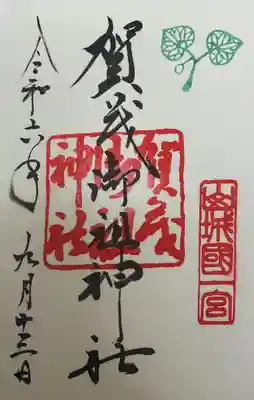 山城國一宮
賀茂御祖神社
賀茂御祖神社
令和六年九月十三日